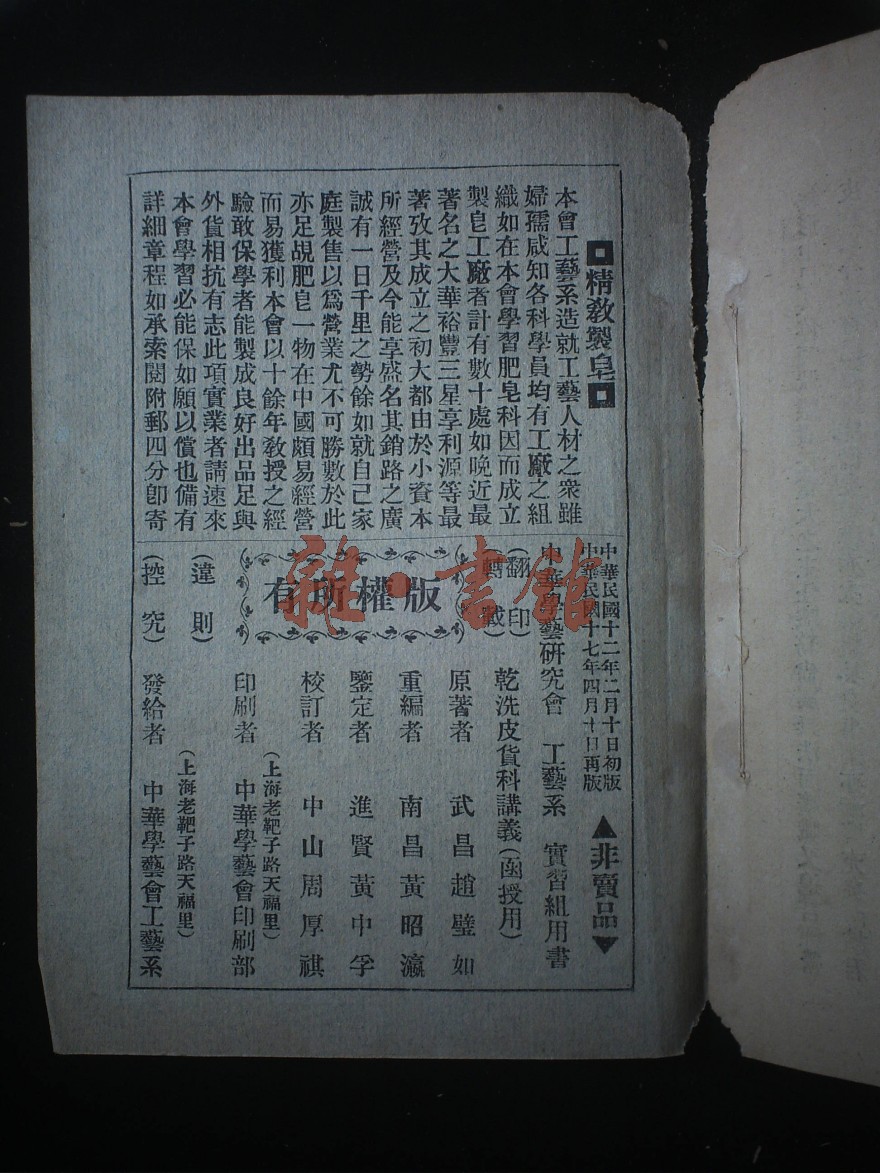 精敎製皂
本會工藝系造就工藝人材之衆雖
婦孺咸知各科學員均有工廠之組
織如在本會學習肥皂科因而成立
製皂工廠者計有數十處如晚近最
著名之大華裕豐三星享利源等最
著攷其成立之初大都由於小資本
所經營及今能享盛名其銷路之廣
誠有一日千里之勢餘如就自己家
庭製售以爲營業尤不可勝數於此
亦足覘肥皂一物在中國頗易經營
而易獲利本會以十餘年敎授之經
驗敢保學者能製成良好出品足與
外貨相抗有志此項實業者請速來
本會學習必能保如願以償也備有
詳細章程如承索閱附郵四分卽寄
中華民國十二年二月十日初版
中華民國十七年四月十日再版
▲非賣品▼
中華學藝研究會 工藝系 實習組用書
(翻印)
(轉載)
乾洗皮貨科講義(函授用)
版權所有
原著者 武昌趙璧如
重編者 南昌黃昭瀛
鑒定者 進賢黃中孚
校訂者 中山周厚祺
(上海老靶子路天福里)
印刷者 中華學藝會印刷部
(違則)
(上海老靶子路天福里)
(控究)
發給者 中華學藝會工藝系
雜·書館